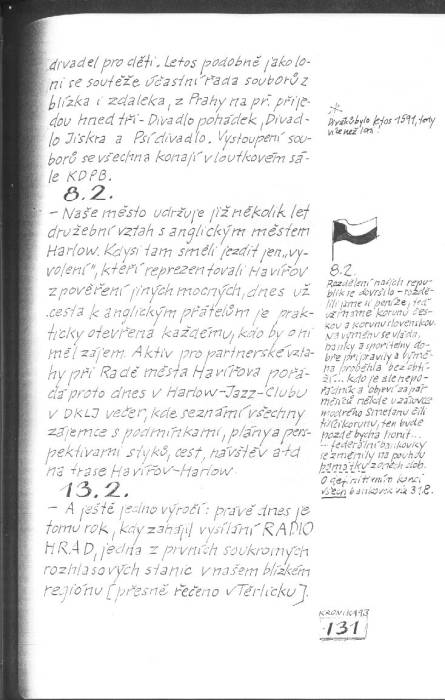 divadel pro děti. Letos podobně jako lo-
ni se soutěže účastní řada souborů z
blízka i zdaleka, z Prahy na př. přije-
dou hned tři - Divadlo pohádek, Divad-
lo Jiskra a Psí divadlo. Vystoupení sou-
borů se všechna konají v loutkovém sá-
le KDPB.
8.2.
- Naše město udržuje již několik let
družební vztah s anglickým městem
Harlow. Kdysi tam směli jezdit jen „vy-
volení", kteří reprezentovali Havířov
z pověření jiných mocných, dnes už
cesta k anglickým přátelům je prak-
ticky otevřena každému, kdo by o ni
měl zájem. Aktiv pro partnerské vzta-
hy při Radě města Havířova pořá-
dá proto dnes v Harlow-Jazz-Clubu
v DKLJ večer, kde seznámí všechny
zájemce s podmínkami, plány a pers-
pektivami styků, cest, návštěv atd
na trase Havířov-Harlow.
13.2.
- A ještě jedno výročí: právě dnes je
tomu rok, kdy zahájil vysílání RADIO
HRAD, jedna z prvních soukromých
rozhlasových stanic v našem blízkém
regiónu [přesně řečeno v Těrlicku].
Diváků bylo letos 1591, tedy
více než loni!
8.2.
Rozdělení našich repu-
blik se dovršilo - rozdě-
lili jsme si peníze, teď
už máme korunu čes-
kou a korunu slovenskou.
Na výměnu se vláda,
banky a spořitelny do-
bře připravily a výmě-
na proběhla bez obtí-
ží... kdo je ale nepo-
řádník a objeví za pár
měsíců někde v zásuvce
modrého Smetanu čili
tisícikorunu, ten bude
pozdě bycha honit...
... federální bankovky
se změnily na pouhou
památku zašlých dob.
všech bankovek viz 31.8.
KRONIKA 93
131